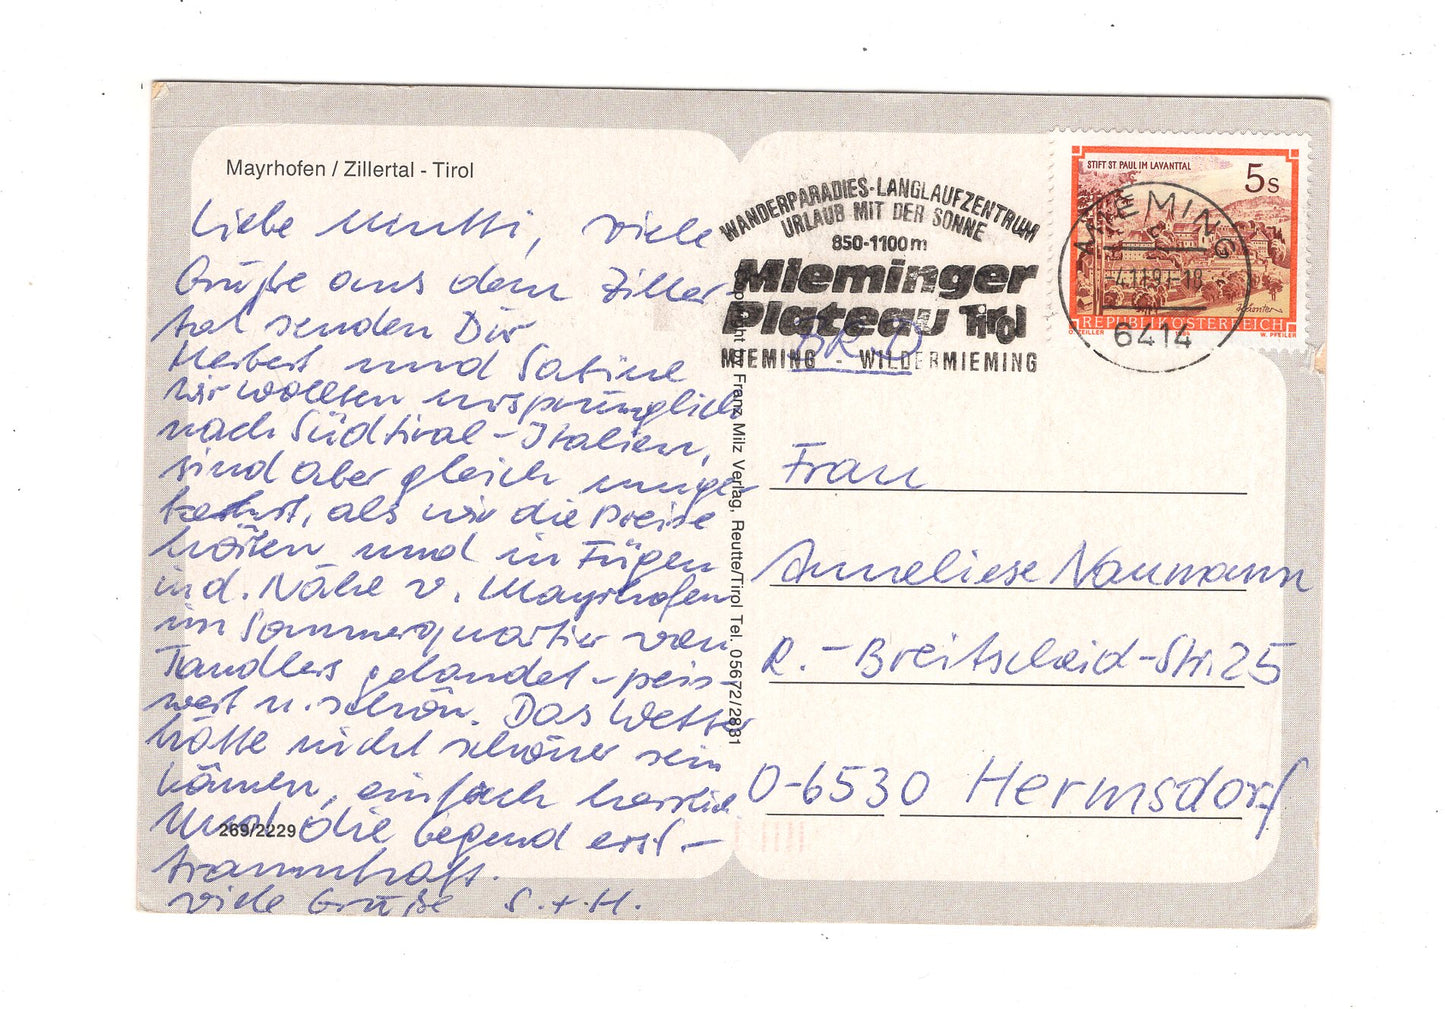 Mayrhofen / Zillertal - Tirol
Liebe Mutti, viele
Grüße aus dem Ziller-
tal senden Dir
Herbert und Sabine
wir wollten ursprünglich
nach Südtirol-Italien,
sind aber gleich umge-
kehrt, als wir die Preise
hörten und in Fügen
in d. Nähe v. Mayrhofen
im Sommerquartier von
Tandlers gelandet - preis-
wert u. schön. Das Wetter
hätte nicht schöner sein
können, einfach herrlich
Und die Gegend erst -
traumhaft.
viele Grüße S. + H.
269/2229
Copyright by Franz Milz Verlag, Reutte/Tirol Tel. 05672/2831
WANDERPARADIES-LANGLAUFZENTRUM
URLAUB MIT DER SONNE
850-1100m
Mieminger
Plateau Tirol
MIEMING WILDERMIEMING
BRD
STIFT ST PAUL IM LAVANTTAL
5s
REPUBLIK ÖSTERREICH
O. ZEILLER
W. PFEILER
MIEMING
6414
Frau
Anneliese Naumann
R.-Breitscheid-Str. 25
O-6530 Hermsdorf